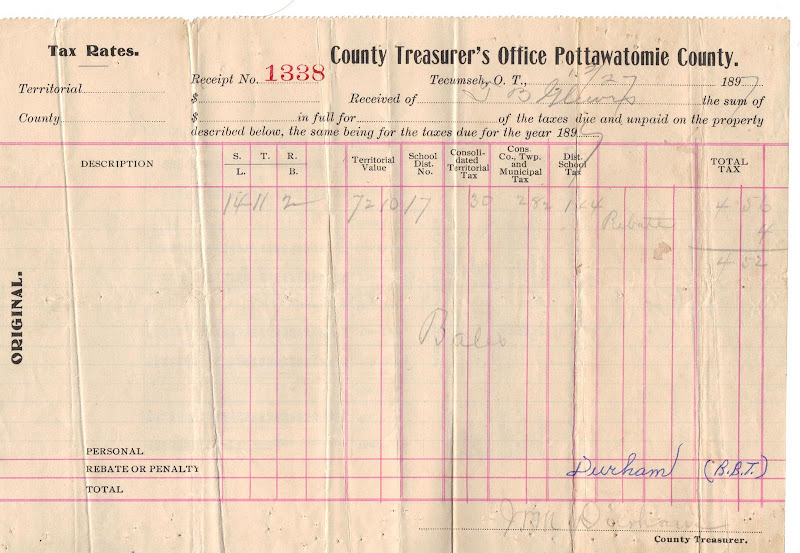 Tax Rates.
County Treasurer's Office Pottawatomie County.
Receipt No. 1338
Tecumseh, O. T., 12/27 1897
Territorial
$
Received of J B Lewis the sum of
County
$ in full for of the taxes due and unpaid on the property
described below, the same being for the taxes due for the year 1897
DESCRIPTION S. T. R. Territorial Value School Dist. No. Consolidated Territorial Tax Cons. Co., Twp. and Municipal Tax Dist. School Tax TOTAL TAX
L. B.
14 11 2 72 10 17 30 282 144 4 56
Rebate 4
4 52
ORIGINAL.
Bales
PERSONAL
REBATE OR PENALTY Durham (B.B.T.)
TOTAL
Durham
County Treasurer.